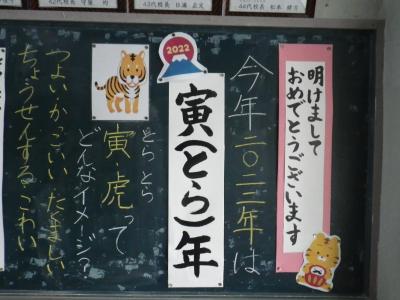 明けまして
おめでとうございます
今年二〇二二年は
2022
寅(とら)年
とら とら
寅虎って
どんなイメージ?
つよい かっこいい たくましい
ちょうせんする こわい